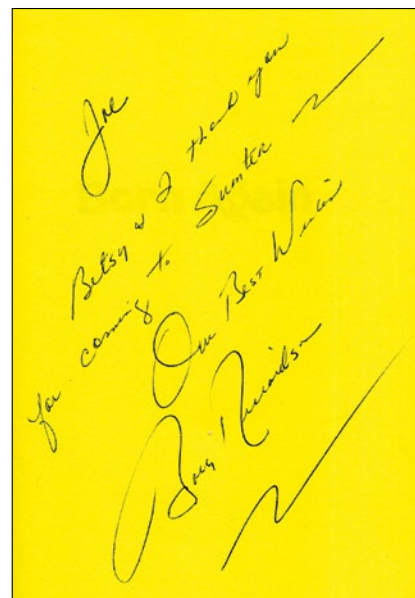 Joe
Betsy & I thank you
for coming to Sumter
Our Best Wishes
Richardson